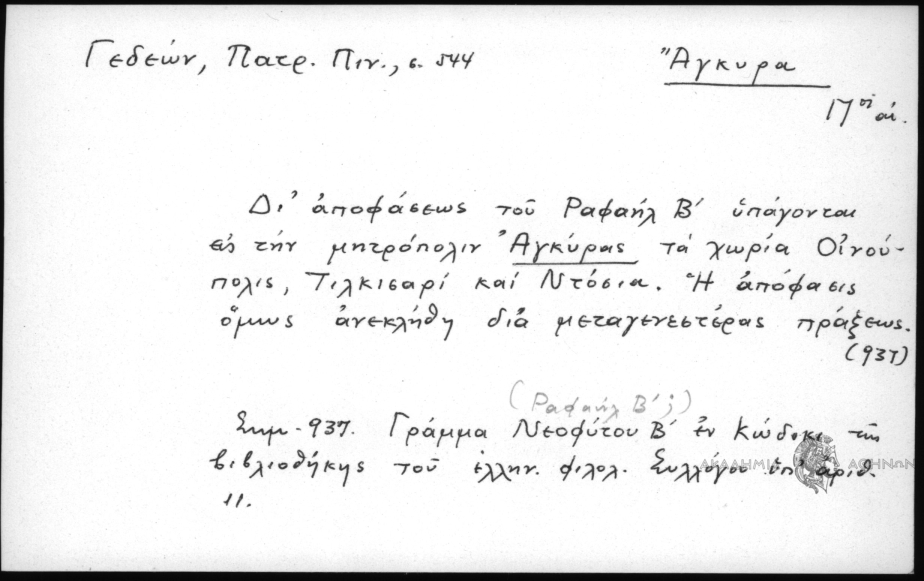 Γεδεών, Πατρ. Πιν., σ. 544
Ἄγκυρα
17ος αἰ.
Δι' ἀποφάσεως τοῦ Ραφαήλ Β' ὑπάγονται
εἰς τήν μητρόπολιν Ἀγκύρας τά χωρία Οἰνού-
πολις, Τιλκισαρί καί Ντόσια. Ἡ ἀπόφασις
ὅμως ἀνεκλήθη διά μεταγενεστέρας πράξεως.
(937)
(Ραφαήλ Β';)
Σημ. 937. Γράμμα Νεοφύτου Β' ἐν Κώδικι τῆς
βιβλιοθήκης τοῦ ἑλλην. φιλολ. Συλλόγου ὑπ' ἀριθ.
11.
ΑΚΑΔΗΜΙΑ ΑΘΗΝΩΝ